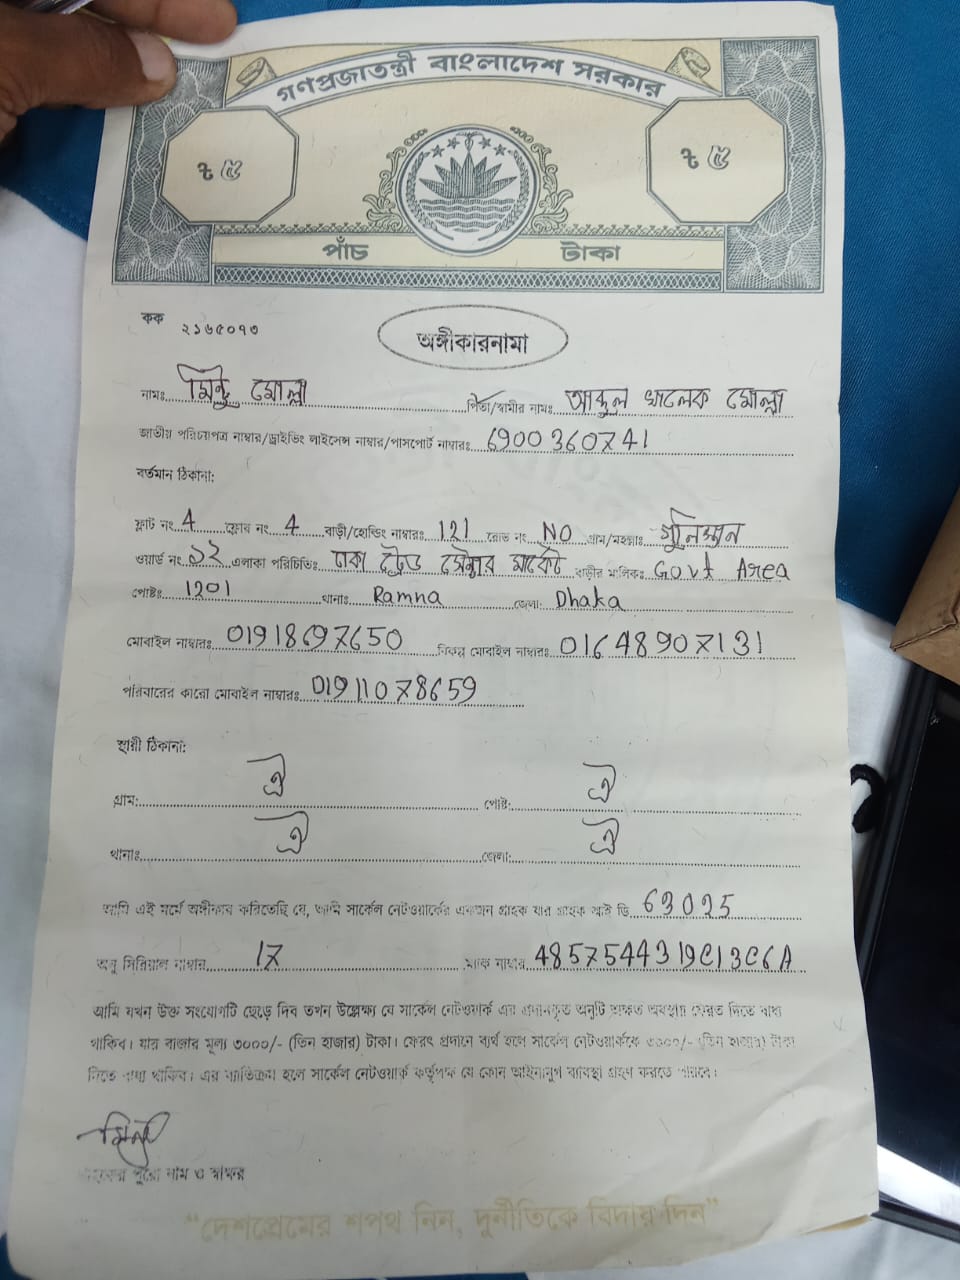 গণপ্রজাতন্ত্রী বাংলাদেশ সরকার
৳ ৫ ৳ ৫
পাঁচ টাকা
কক ২১৬৫০৭৩
অঙ্গীকারনামা
নামঃ মিন্টু মোল্লা পিতা/স্বামীর নামঃ আব্দুল খালেক মোল্লা
জাতীয় পরিচয়পত্র নাম্বার/ড্রাইভিং লাইসেন্স নাম্বার/পাসপোর্ট নাম্বারঃ 6900360741
বর্তমান ঠিকানা:
ফ্লাট নং 4 ফ্লোর নং 4 বাড়ী/হোল্ডিং নাম্বারঃ 121 রোড নং NO গ্রাম/মহল্লাঃ গুলিস্তান
ওয়ার্ড নং ১২ এলাকা পরিচিতিঃ ঢাকা ট্রেড সেন্টার মার্কেট বাড়ীর মালিকঃ Govt Area
পোষ্টঃ 1201 থানাঃ Ramna জেলা: Dhaka
মোবাইল নাম্বারঃ 01918697650 বিকল্প মোবাইল নাম্বারঃ 01648907131
পরিবারের কারো মোবাইল নাম্বারঃ 01911078659
স্থায়ী ঠিকানা:
গ্রাম: ঐ পোষ্ট: ঐ
থানাঃ ঐ জেলা: ঐ
আমি এই মর্মে অঙ্গীকার করিতেছি যে, আমি সার্কেল নেটওয়ার্কের একজন গ্রাহক যার গ্রাহক আই ডি 63025
অনু সিরিয়াল নাম্বার 17 ম্যাক নাম্বার 4857544319C13C6A
আমি যখন উক্ত সংযোগটি ছেড়ে দিব তখন উল্লেখ্য যে সার্কেল নেটওয়ার্ক এর প্রদানকৃত অনুটি অক্ষত অবস্থায় ফেরত দিতে বাধ্য
থাকিব। যার বাজার মূল্য ৩০০০/- (তিন হাজার) টাকা। ফেরৎ প্রদানে ব্যর্থ হলে সার্কেল নেটওয়ার্ককে ৩০০০/- (তিন হাজার) টাকা
দিতে বাধ্য থাকিব। এর ব্যতিক্রম হলে সার্কেল নেটওয়ার্ক কর্তৃপক্ষ যে কোন আইনানুগ ব্যবস্থা গ্রহণ করতে পারবে।
মিন্টু
গ্রাহকের পুরো নাম ও স্বাক্ষর
“দেশপ্রেমের শপথ নিন, দুর্নীতিকে বিদায় দিন”